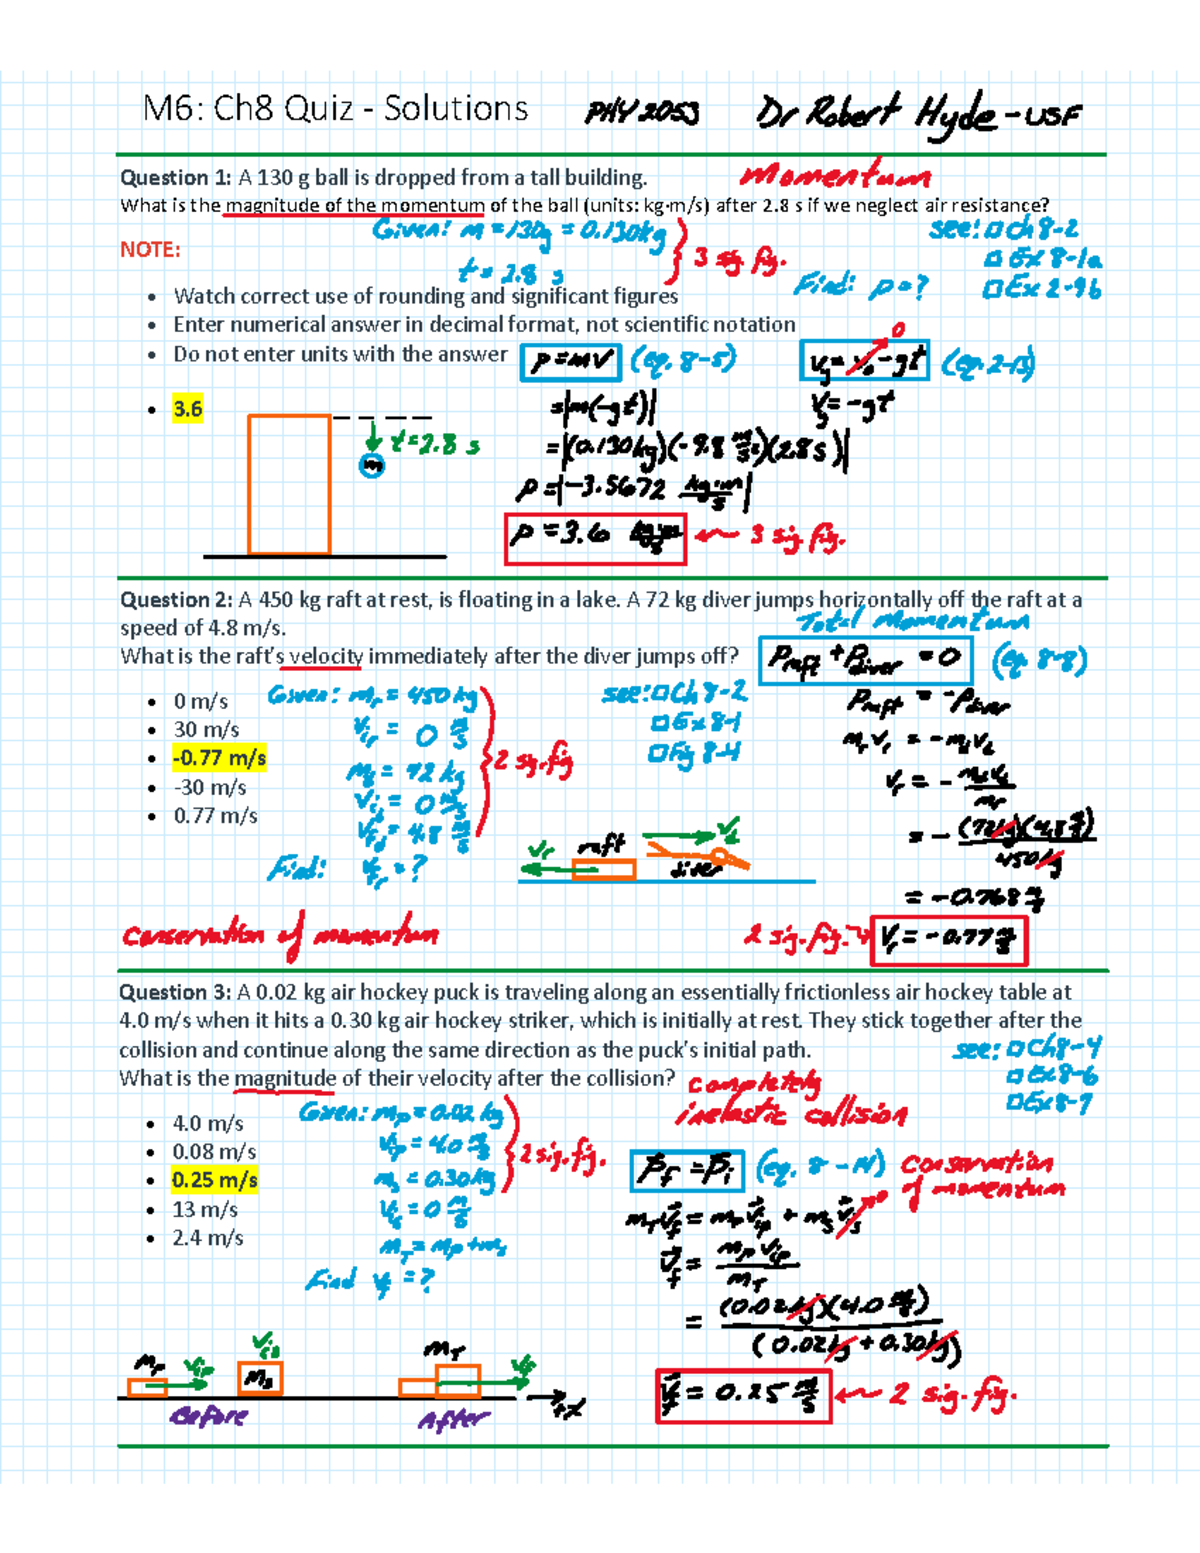 M6: Ch8 Quiz - Solutions PHY 2053 Dr Robert Hyde - USF
Question 1: A 130 g ball is dropped from a tall building. Momentum
What is the magnitude of the momentum of the ball (units: kg·m/s) after 2.8 s if we neglect air resistance?
Given: m = 130g = 0.130kg
t = 2.8 s
} 3 sig fig.
see: □ Ch 8-2
□ Ex 8-1a
□ Ex 2-9b
Find: p = ?
NOTE:
• Watch correct use of rounding and significant figures
• Enter numerical answer in decimal format, not scientific notation
• Do not enter units with the answer
• 3.6
t = 2.8 s
m
p = mv (eq. 8-5)
= |m(-gt)|
= |(0.130kg)(-9.8 m/s²)(2.8 s)|
p = |-3.5672 kg·m/s|
p = 3.6 kg·m/s ← 3 sig fig.
Vy = V0 - gt (eq. 2-13)
0
Vy = -gt
Question 2: A 450 kg raft at rest, is floating in a lake. A 72 kg diver jumps horizontally off the raft at a
speed of 4.8 m/s.
What is the raft's velocity immediately after the diver jumps off?
• 0 m/s
• 30 m/s
• -0.77 m/s
• -30 m/s
• 0.77 m/s
Given: mr = 450 kg
Vir = 0 m/s
md = 72 kg
Vid = 0 m/s
Vfd = 4.8 m/s
} 2 sig. fig
Find: Vfr = ?
see: □ Ch 8-2
□ Ex 8-1
□ Fig 8-4
Total Momentum
Praft + Pdiver = 0 (eq. 8-8)
Praft = -Pdiver
mr vr = -md vd
vr = - md vd / mr
= - (72kg)(4.8 m/s) / 450kg
= -0.768 m/s
2 sig. fig. → Vr = -0.77 m/s
Vr raft Vd
diver
Conservation of momentum
Question 3: A 0.02 kg air hockey puck is traveling along an essentially frictionless air hockey table at
4.0 m/s when it hits a 0.30 kg air hockey striker, which is initially at rest. They stick together after the
collision and continue along the same direction as the puck's initial path.
What is the magnitude of their velocity after the collision?
see: □ Ch 8-4
□ Ex 8-6
□ Ex 8-7
completely
inelastic collision
• 4.0 m/s
• 0.08 m/s
• 0.25 m/s
• 13 m/s
• 2.4 m/s
Given: mp = 0.02 kg
Vip = 4.0 m/s
ms = 0.30 kg
Vis = 0 m/s
mT = mp + ms
} 2 sig. fig.
Find Vf = ?
Pf = Pi (eq. 8-14) conservation
of momentum
mT Vf = mp Vip + ms Vis
0
Vf = mp Vip / mT
= (0.02kg)(4.0 m/s) / (0.02kg + 0.30kg)
Vf = 0.25 m/s ← 2 sig. fig.
mp Vip Vis ms
mT Vf
+x
Before After